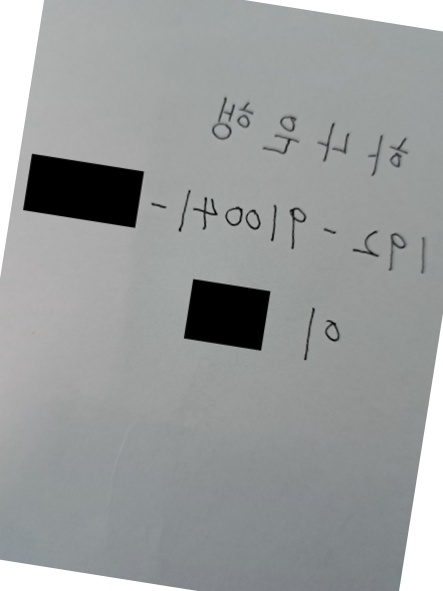 하나은행
192-910041-
이